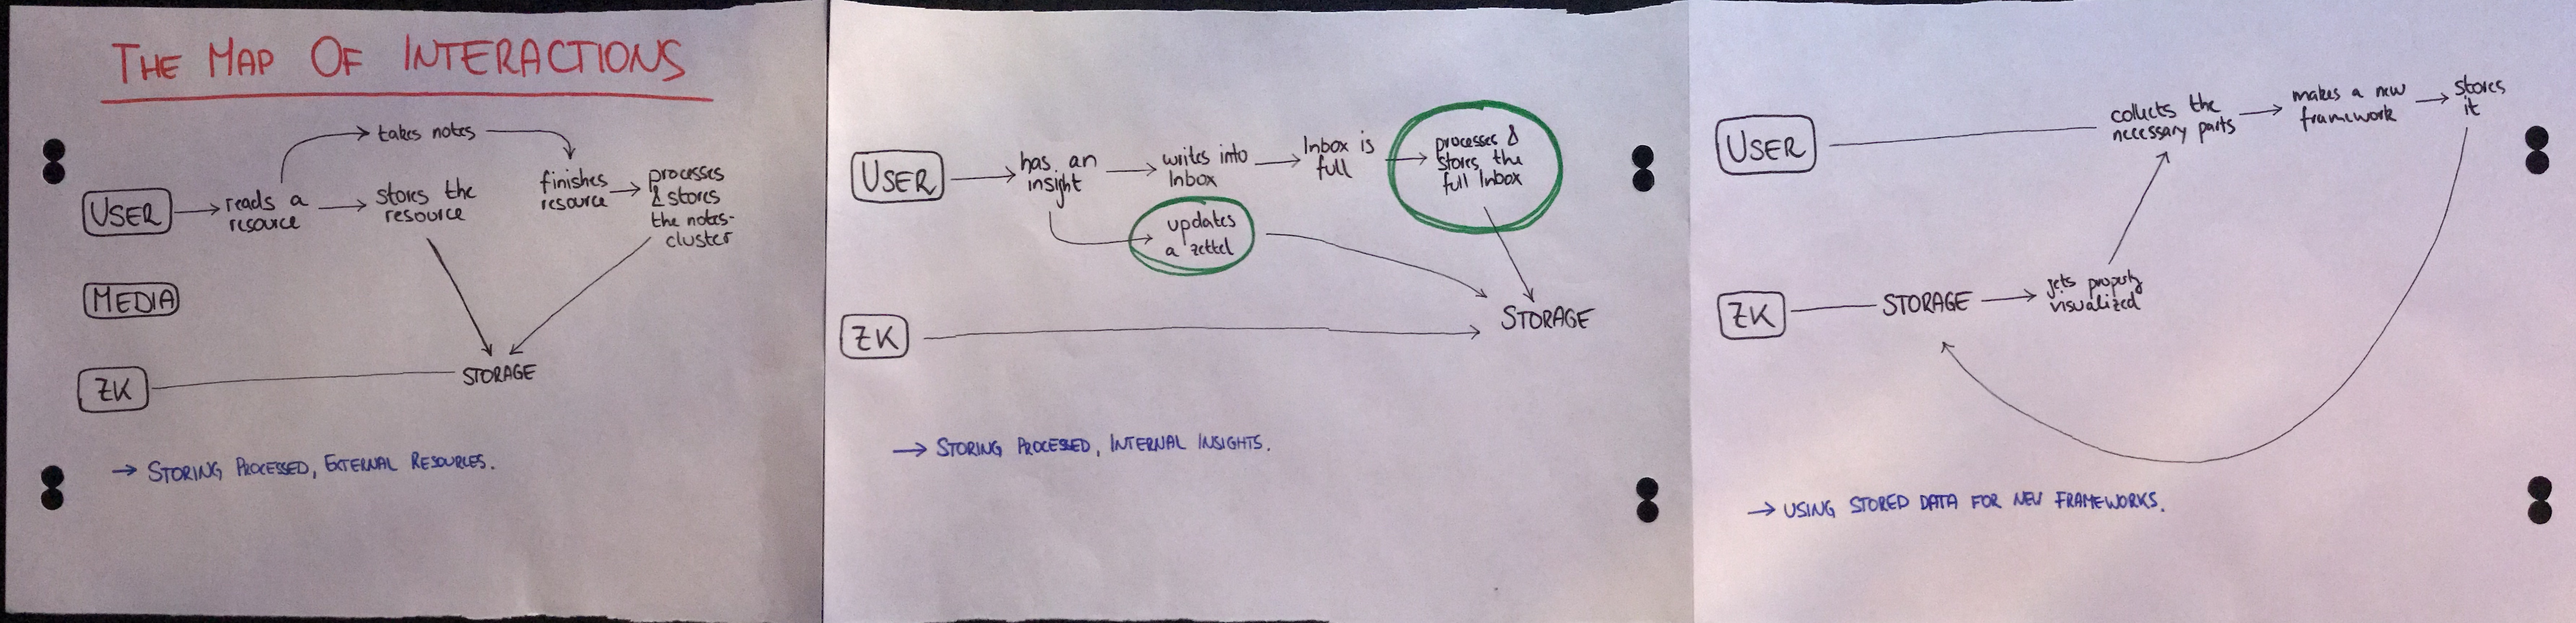 THE MAP OF INTERACTIONS
takes notes
USER
reads a
resource
stores the
resource
finishes
resource
processes
& stores
the notes-
cluster
MEDIA
ZK
STORAGE
→ STORING PROCESSED, EXTERNAL RESOURCES.
USER
has an
insight
writes into
Inbox
Inbox is
full
processes &
stores the
full Inbox
updates
a zettel
ZK
STORAGE
→ STORING PROCESSED, INTERNAL INSIGHTS.
USER
collects the
necessary parts
makes a new
framework
stores
it
ZK
STORAGE
gets properly
visualized
→ USING STORED DATA FOR NEW FRAMEWORKS.